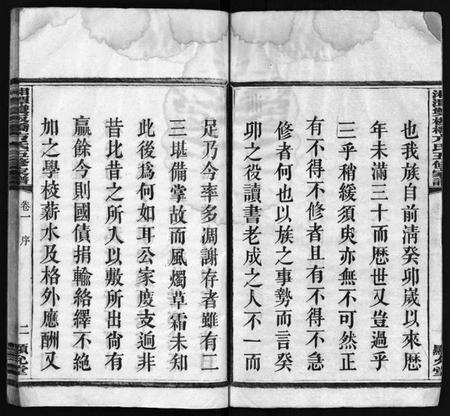 也我族自前清癸卯歲以來歷
年未滿三十而歷世又豈過乎
三乎稍緩須臾亦無不可然正
有不得不修者且有不得不急
修者何也以族之事勢而言癸
卯之役讀書老成之人不一而
足乃今率多凋謝存者雖有二
三堪備掌故而風燭草霜未知
此後為何如耳公家度支迥非
昔比昔之所入以敷所出尚有
贏餘今則國債捐輸絡繹不絶
加之學校薪水及格外應酬又
卷一 序
二